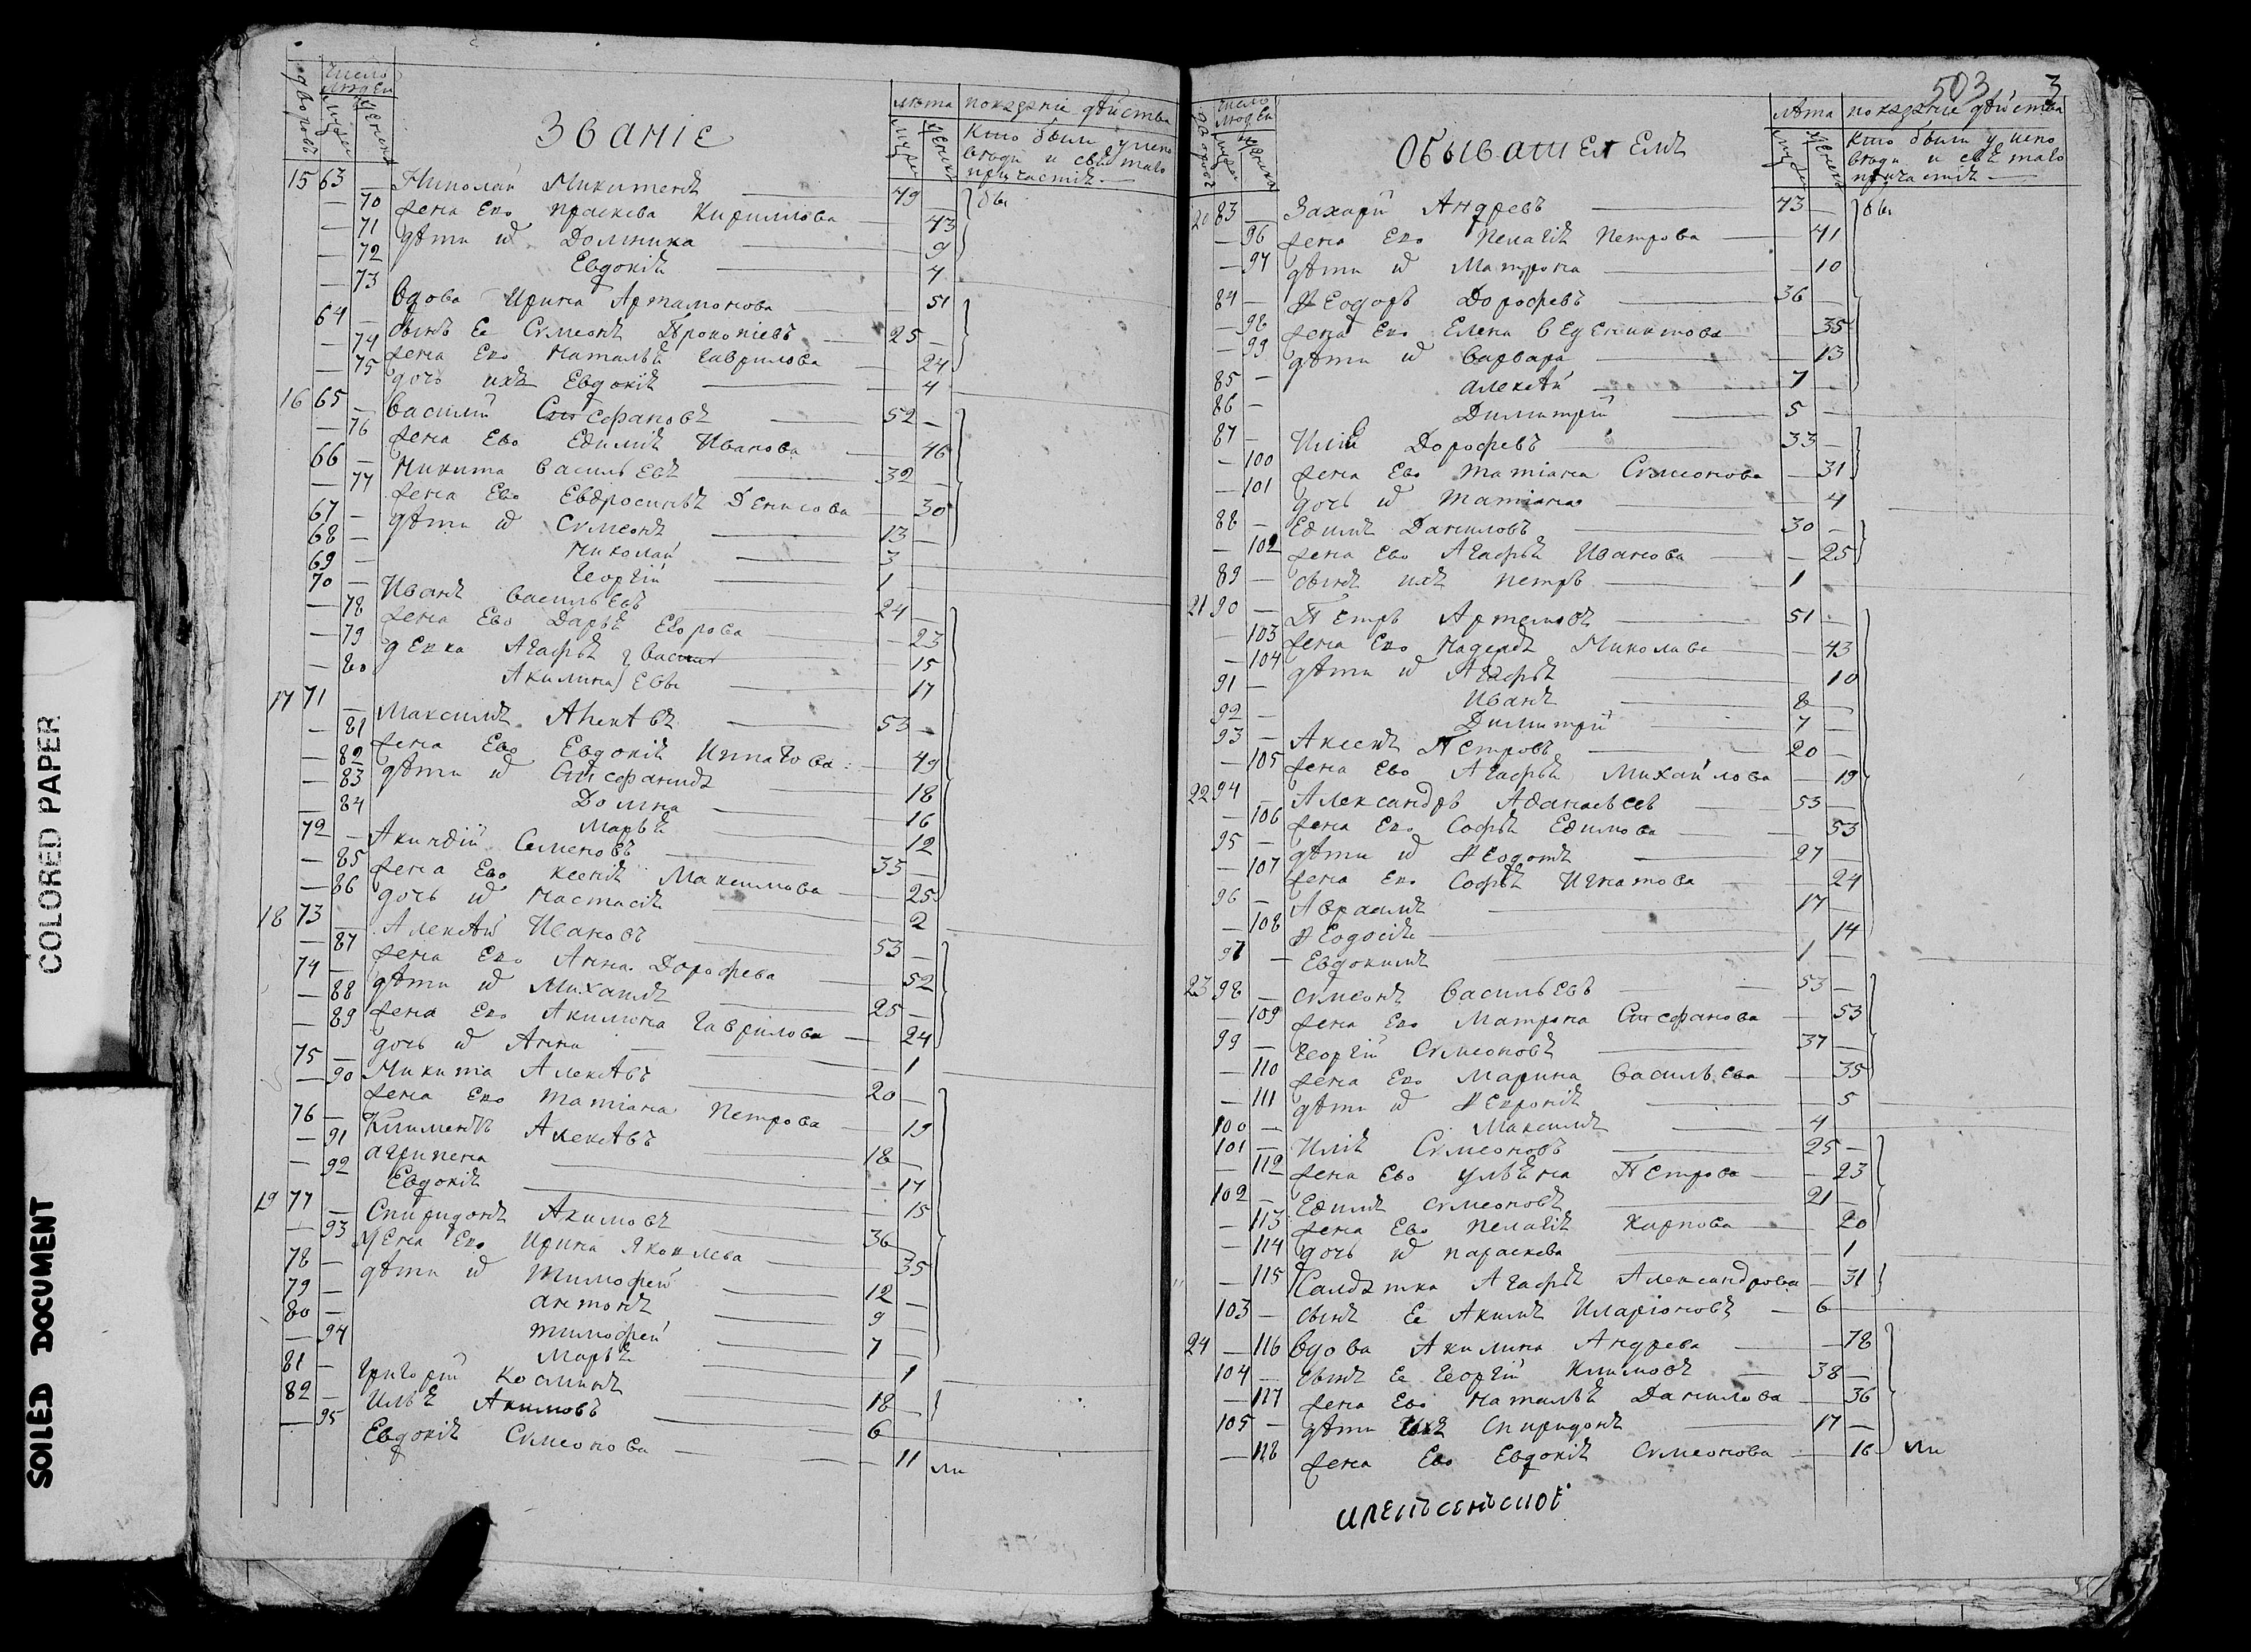 COLORED PAPER
SOILED DOCUMENT
число людей
дворовъ
мужеска
женска
ЗВАНІЕ
лѣта
мужеска
женска
показаніе дѣйства
Кто были у испо
вѣди и свѣтаго
причастіѣ
15 63 — Николай Никитенѣ — 49 — бы
— 70 жена Его Праскева Кирилова — 43
— 71 дѣти иѣ Домника — 9
— 72 Евдокіѣ — 4
— 73 Вдова Ирина Артамонова 51
64 — сынъ Ее Сѵмеонѣ Прокопіевъ — 25 —
— 74 жена Его Наталѣѣ Гаврилова — 24
— 75 дочь ихѣ Евдокіѣ — 4
16 65 — Василій Стефановѣ — 52 —
— 76 жена Ево Еѳиміѣ Иванова — 46
66 — Никита Васильевѣ — 32 —
— 77 жена Ево Евѳросинѣѣ Денисова — 30
67 — дѣти иѣ Сѵмеонѣ — 13 —
68 — Николай — 3 —
69 — Георгій — 1 —
70 — Иванѣ Васильевъ — 24 —
— 78 жена Ево Дарѣѣ Егорова — 23
— 79 девка Агафѣѣ Васил — 15
— 80 Акилина Евы — 17
17 71 — Максимѣ Алекѣвѣ — 53 —
— 81 жена Ево Евдокіѣ Игнатова — 49
— 82 дѣти иѣ Стефанидѣ — 18
— 83 Домна — 16
— 84 Марѣѣ — 12
72 — Акинѳій Семеновъ — 35 —
— 85 жена Ево Ксеніѣ Максимова — 25
— 86 дочь иѣ Настасіѣ — 2
18 73 — Алекѣй Ивановъ — 53 —
— 87 жена Его Анна Дорофева — 52
74 — дѣти иѣ Михаилѣ — 25 —
— 88 жена Его Акилина Гаврилова — 24
— 89 дочь иѣ Анна — 1
75 — Никита Алекѣвъ — 20 —
— 90 жена Его Татіана Петрова — 19
76 — Климентъ Алекѣвъ — 18 —
— 91 Агрипена — 17
— 92 Евдокіѣ — 15
19 77 — Спиридонѣ Акимовѣ — 36 —
— 93 жена Его Ирина Яковлева — 35
78 — дѣти иѣ Тимофей — 12 —
79 — Антонѣ — 9
80 — Тимофей — 7 —
— 94 Марѣѣ — 1
81 — Григорій Косминѣ — 18 —
82 — Илѣѣ Акимовъ — 6
— 95 Евдокіѣ Сѵмеонова — 11 ли
503 3
число людей
дворовъ
мужеска
женска
ОБЫВАТЕЛЕМѢ
лѣта
мужеска
женска
показаніе дѣйства
Кто были у испо
вѣди и свѣтаго
причастіѣ —
20 83 — Захарій Андревъ — 43 — бы
— 96 жена Его Пелагіѣ Петрова — 41
— 97 дѣти иѣ Матрона — 10
84 — Ѳеодоръ Дорофевъ — 36 —
— 98 жена Его Елена Ведениктова — 35
— 99 дѣти иѣ Варвара — 13
85 — Алекѣй — 7 —
86 — Димитрій — 5 —
87 — Иліѣ Дорофевъ — 33 —
— 100 жена Ево Татіана Сѵмеонова — 31
— 101 дочь иѣ Татіана — 4
88 — Еѳимѣ Даниловъ — 30 —
— 102 жена Ево Агафѣѣ Иванова — 25
89 — сынѣ ихѣ Петръ — 1
21 90 — Петръ Артемовѣ — 51 —
— 103 жена Его Надеждѣ Николаве — 43
— 104 дѣти иѣ Агафѣѣ — 10
91 — Иванѣ — 8 —
92 — Димитрій — 7 —
93 — Аксенѣ Петровъ — 20 —
— 105 жена Ево Агафѣѣ Михайлова — 19
22 94 — Александръ Аѳанасьевъ — 53 —
— 106 жена Его Софѣѣ Еѳимова — 53
95 — дѣти иѣ Ѳеодотѣ — 27 —
— 107 жена Его Софѣѣ Игнатова — 24
96 — Аврамѣ — 17 —
— 108 Ѳеодосіѣ — 14
97 — Евдокимѣ — 1 —
23 98 — Сѵмеонѣ Васильевъ — 53 —
— 109 жена Его Матрона Стефанова — 53
99 — Георгій Сѵмеоновѣ — 37 —
— 110 жена Его Марина Васильева — 35
— 111 дѣти иѣ Ѳевроніѣ — 5
100 — Максимѣ — 4
101 — Иліѣ Сѵмеоновъ — 25 —
— 112 жена Ево Улѣѣна Петрова — 23
102 — Еѳимѣ Сѵмеоновѣ — 21 —
— 113 жена Ево Пелагіѣ Карпова — 20
— 114 дочь иѣ Параскева — 1
— 115 Салдѣтка Агафѣѣ Александрова — 31
103 — сынѣ Ее Акимѣ Иларіоновѣ — 6
24 — 116 Вдова Акилина Андрева — 78
104 — сынѣ Ее Георгій Климовѣ — 38 —
— 117 жена Ево Наталѣѣ Данилова — 36
105 — дѣти ихѣ Спиридонѣ — 17 —
— 118 жена Ево Евдокіѣ Сѵмеонова — 16 ли